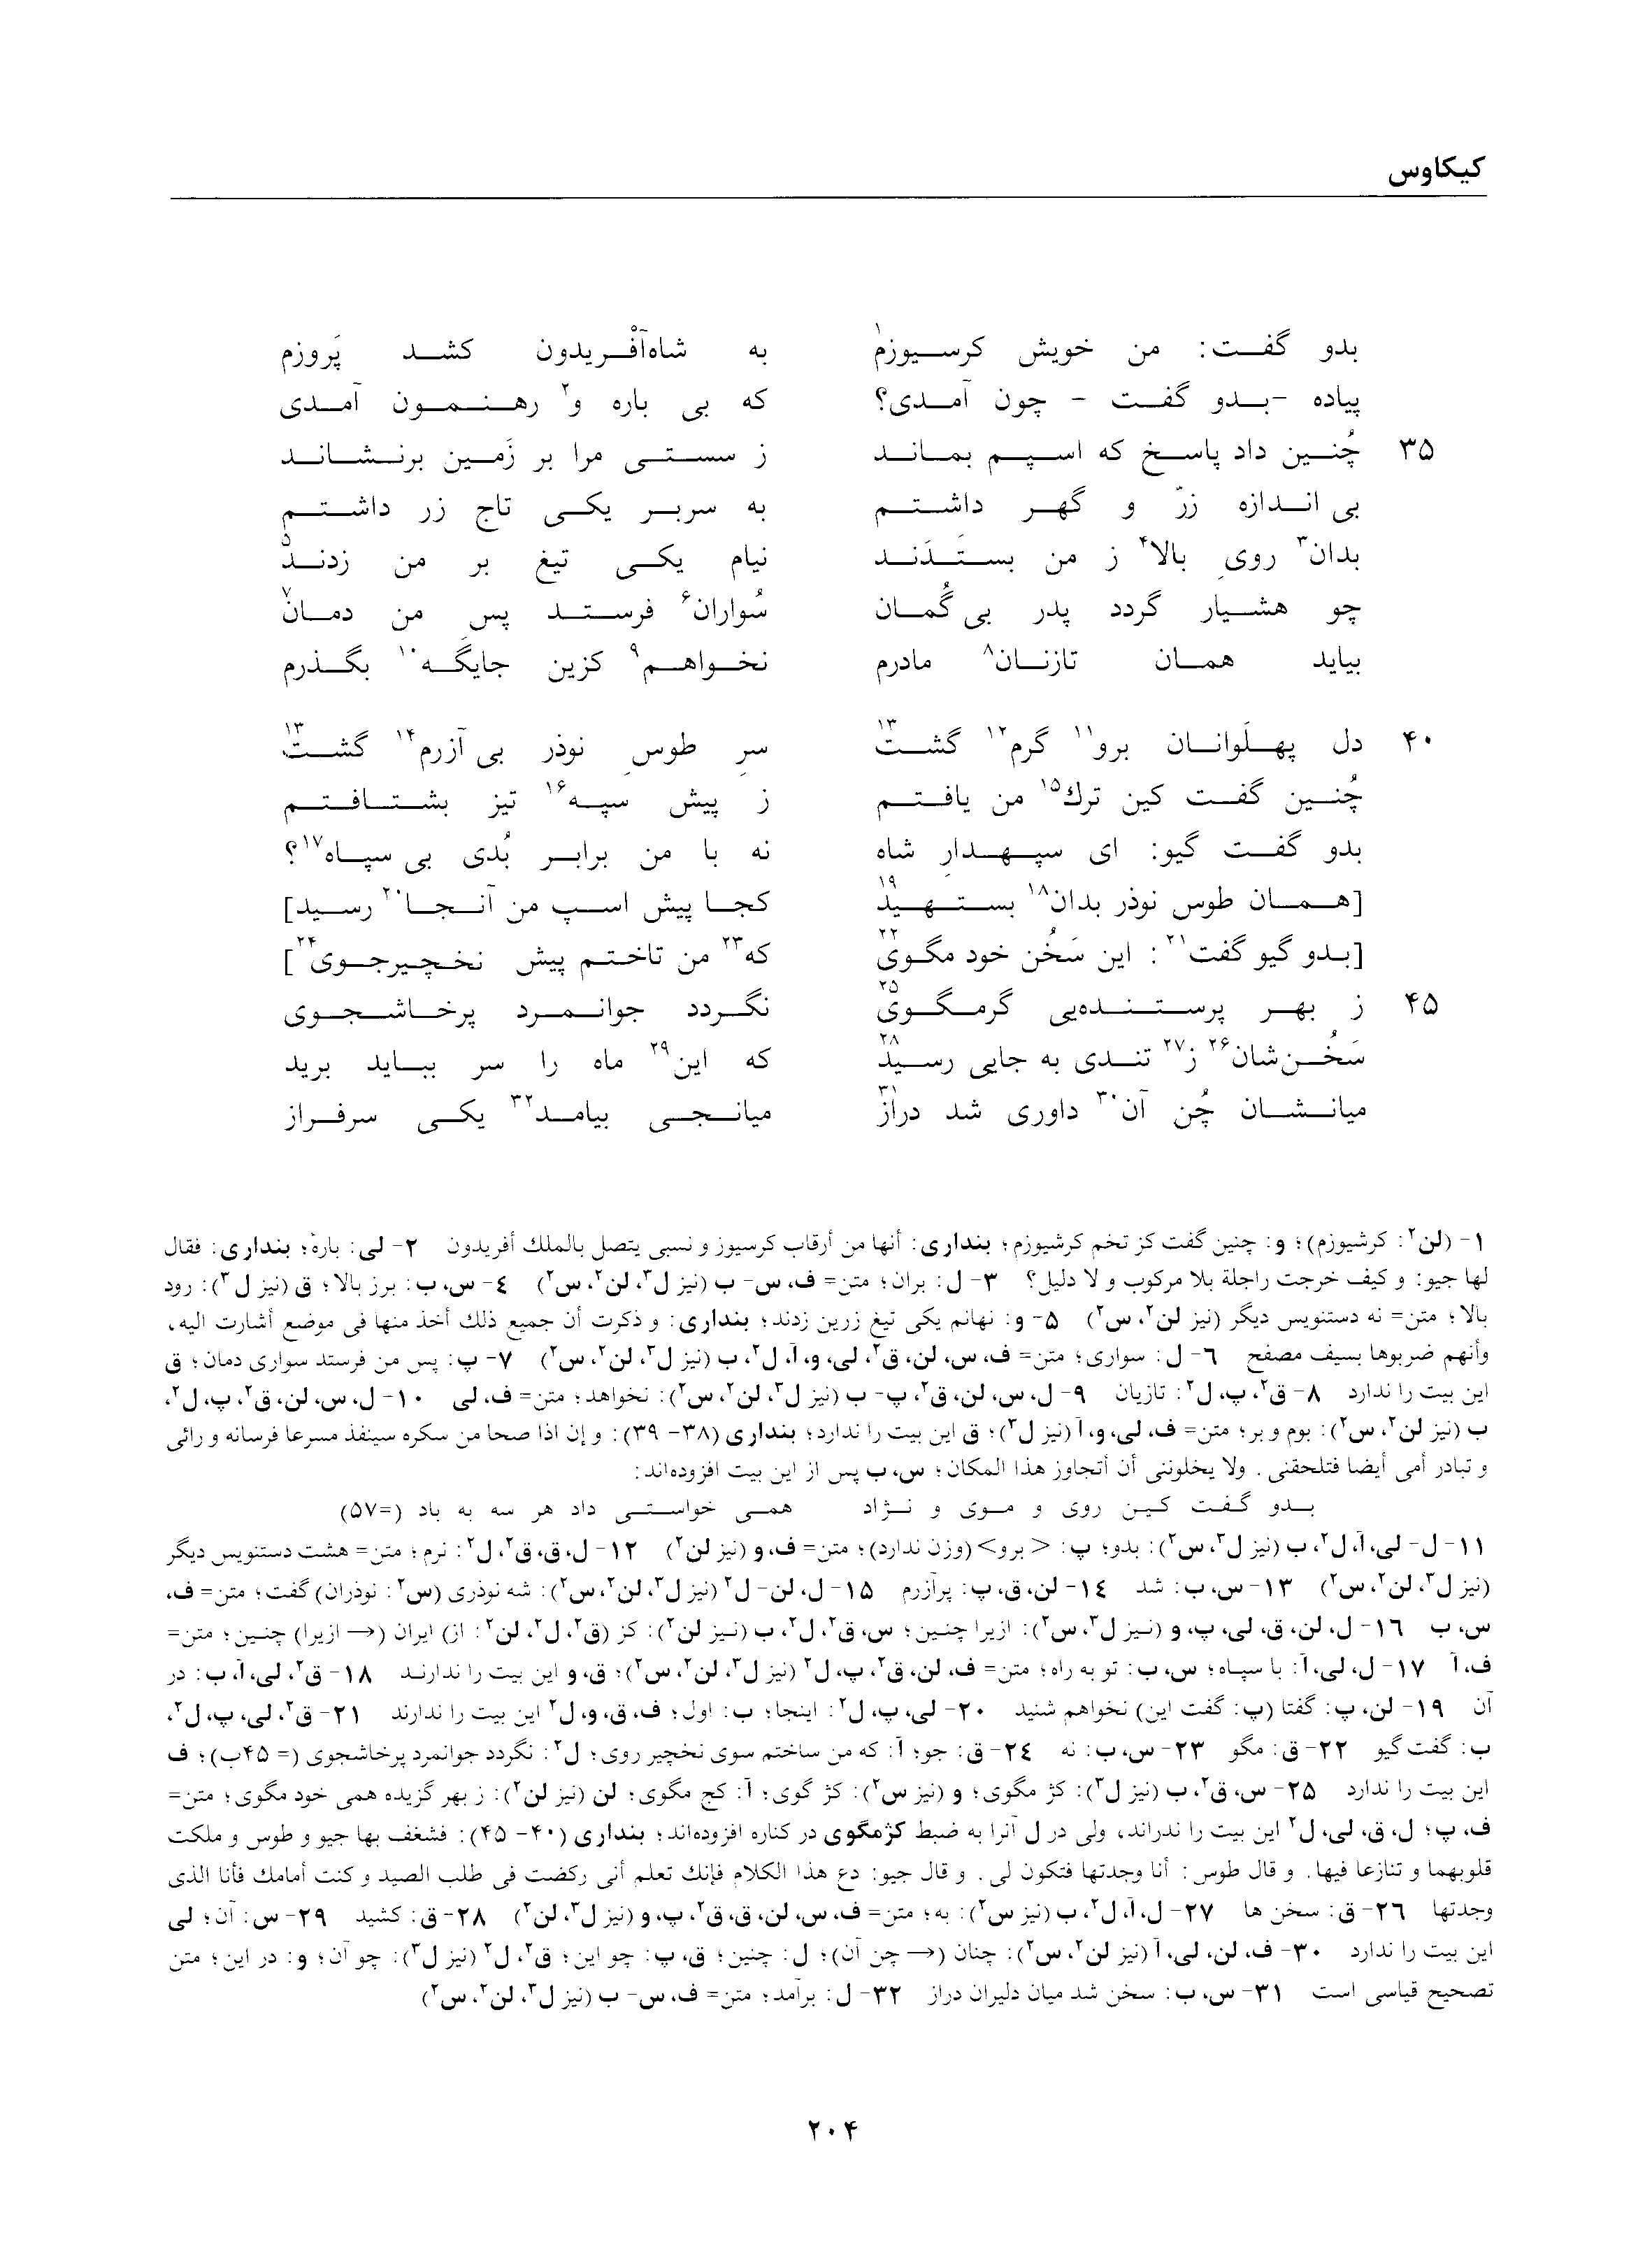 کیکاوس
بدو گفت: من خویش کرسیوزم۱ به شاه‌آفْریدون کشد پَروزم
پیاده -بدو گفت - چون آمدی؟ که بی باره و۲ رهنمون آمدی
۳۵ چُنین داد پاسخ که اسپم بماند ز سستی مرا بر زَمین برنشاند
بی اندازه زرّ و گهر داشتم به سربر یکی تاج زر داشتم
بدان۳ روی بالا۴ ز من بستَدَند نیام یکی تیغ بر من زدند۵
چو هشیار گردد پدر بی گُمان سُواران۶ فرستد پسِ من دمان۷
بیاید همان تازنان۸ مادرم نخواهم۹ کزین جایگَه۱۰ بگذرم
۴۰ دل پهلَوانان برو۱۱ گرم۱۲ گشت۱۳ سرِ طوسِ نوذر بی آزرم۱۴ گشت۱۳
چُنین گفت کین ترك۱۵ من یافتم ز پیش سپه۱۶ تیز بشتافتم
بدو گفت گیو: ای سپهدارِ شاه نه با من برابر بُدی بی سپاه۱۷؟
[همان طوس نوذر بدان۱۸ بستهید۱۹ کجا پیش اسپ من آنجا۲۰ رسید]
[بدو گیو گفت۲۱: این سَخُن خود مگوی۲۲ که۲۳ من تاختم پیش نخچیرجوی۲۴]
۴۵ ز بهر پرستنده‌یی گرمگوی۲۵ نگردد جوانمرد پرخاشجوی
سَخُن‌شان۲۶ ز۲۷ تندی به جایی رسید۲۸ که این۲۹ ماه را سر بباید برید
میانشان چُن آن۳۰ داوری شد دراز۳۱ میانجی بیامد۳۲ یکی سرفراز
۱- (لن۲: کرشیوزم)؛ و: چنین گفت کز تخم کرشیوزم؛ بنداری: أنها من أرقاب کرسیوز و نسبی یتصل بالملك أفریدون ۲- لی: بارهٔ؛ بنداری: فقال
لها جیو: و کیف خرجت راجلة بلا مرکوب و لا دلیل؟ ۳- ل: بران؛ متن= ف، س- ب (نیز ل۳، لن۲، س۲) ۴- س، ب: برز بالا؛ ق (نیز ل۳): رود
بالا؛ متن= نه دستنویس دیگر (نیز لن۲، س۲) ۵- و: نهانم یکی تیغ زرین زدند؛ بنداری: و ذکرت أن جمیع ذلك أخذ منها فی موضع أشارت الیه،
وأنهم ضربوها بسیف مصفح ۶- ل: سواری؛ متن= ف، س، لن، ق۲، لی، و، آ، ل۲، ب (نیز ل۳، لن۲، س۲) ۷- پ: پس من فرستد سواری دمان؛ ق
این بیت را ندارد ۸- ق۲، پ، ل۲: تازیان ۹- ل، س، لن، ق۲، پ- ب (نیز ل۳، لن۲، س۲): نخواهد؛ متن= ف، لی ۱۰- ل، س، لن، ق۲، پ، ل۲،
ب (نیز لن۲، س۲): بوم و بر؛ متن= ف، لی، و، آ (نیز ل۳)؛ ق این بیت را ندارد؛ بنداری (۳۸- ۳۹): و إن اذا صحا من سکره سینفذ مسرعا فرسانه و رائی
و تبادر أمی أیضا فتلحقنی. ولا یخلوننی أن أتجاوز هذا المکان؛ س، ب پس از این بیت افزوده‌اند:
بدو گفت کین روی و موی و نژاد همی خواستی داد هر سه به باد (=۵۷)
۱۱- ل- لی، آ، ل۲، ب (نیز ل۳، س۲): بدو؛ پ: <برو> (وزن ندارد)؛ متن= ف، و (نیز لن۲) ۱۲- ل، ق، ق۲، ل۲: نرم؛ متن= هشت دستنویس دیگر
(نیز ل۳، لن۲، س۲) ۱۳- س، ب: شد ۱۴- لن، ق، پ: پرآزرم ۱۵- ل، لن- ل۲ (نیز ل۳، لن۲، س۲): شه نوذری (س۲: نوذران) گفت؛ متن= ف،
س، ب ۱۶- ل، لن، ق، لی، پ، و (نیز ل۳، س۲): ازیرا چنین؛ س، ق۲، ل۲، ب (نیز لن۲): کز (ق۲، ل۲، لن۲: از) ایران (→ ازیرا) چنین؛ متن=
ف، آ ۱۷- ل، لی، آ: با سپاه؛ س، ب: تو به راه؛ متن= ف، لن، ق۲، پ، ل۲ (نیز ل۳، لن۲، س۲)؛ ق، و این بیت را ندارند ۱۸- ق۲، لی، آ، ب: در
آن ۱۹- لن، پ: گفتا (پ: گفت این) نخواهم شنید ۲۰- لی، پ، ل۲: اینجا؛ ب: اول؛ ف، ق، و، ل۲ این بیت را ندارند ۲۱- ق۲، لی، پ، ل۲،
ب: گفت گیو ۲۲- ق: مگو ۲۳- س، ب: نه ۲۴- ق: جو؛ آ: که من ساختم سوی نخچیر روی؛ ل۲: نگردد جوانمرد پرخاشجوی (= ۴۵ب)؛ ف
این بیت را ندارد ۲۵- س، ق۲، ب (نیز ل۳): کژ مگوی؛ و (نیز س۲): کژ گوی؛ آ: کج مگوی؛ لن (نیز لن۲): ز بهر گزیده همی خود مگوی؛ متن=
ف، پ؛ ل، ق، لی، ل۲ این بیت را ندراند، ولی در ل آنرا به ضبط کژمگوی در کناره افزوده‌اند؛ بنداری (۴۰- ۴۵): فشغف بها جیو و طوس و ملکت
قلوبهما و تنازعا فیها. و قال طوس: أنا وجدتها فتکون لی. و قال جیو: دع هذا الکلام فإنك تعلم أنی رکضت فی طلب الصید و کنت أمامك فأنا الذی
وجدتها ۲۶- ق: سخن ها ۲۷- ل، آ، ل۲، ب (نیز س۲): به؛ متن= ف، س، لن، ق، ق۲، پ، و (نیز ل۳، لن۲) ۲۸- ق: کشید ۲۹- س: آن؛ لی
این بیت را ندارد ۳۰- ف، لن، لی، آ (نیز لن۲، س۲): چنان (→ چن آن)؛ ل: چنین؛ ق، پ: چو این؛ ق۲، ل۲ (نیز ل۳): چو آن؛ و: در این؛ متن
تصحیح قیاسی است ۳۱- س، ب: سخن شد میان دلیران دراز ۳۲- ل: برآمد؛ متن= ف، س- ب (نیز ل۳، لن۲، س۲)
۲۰۴